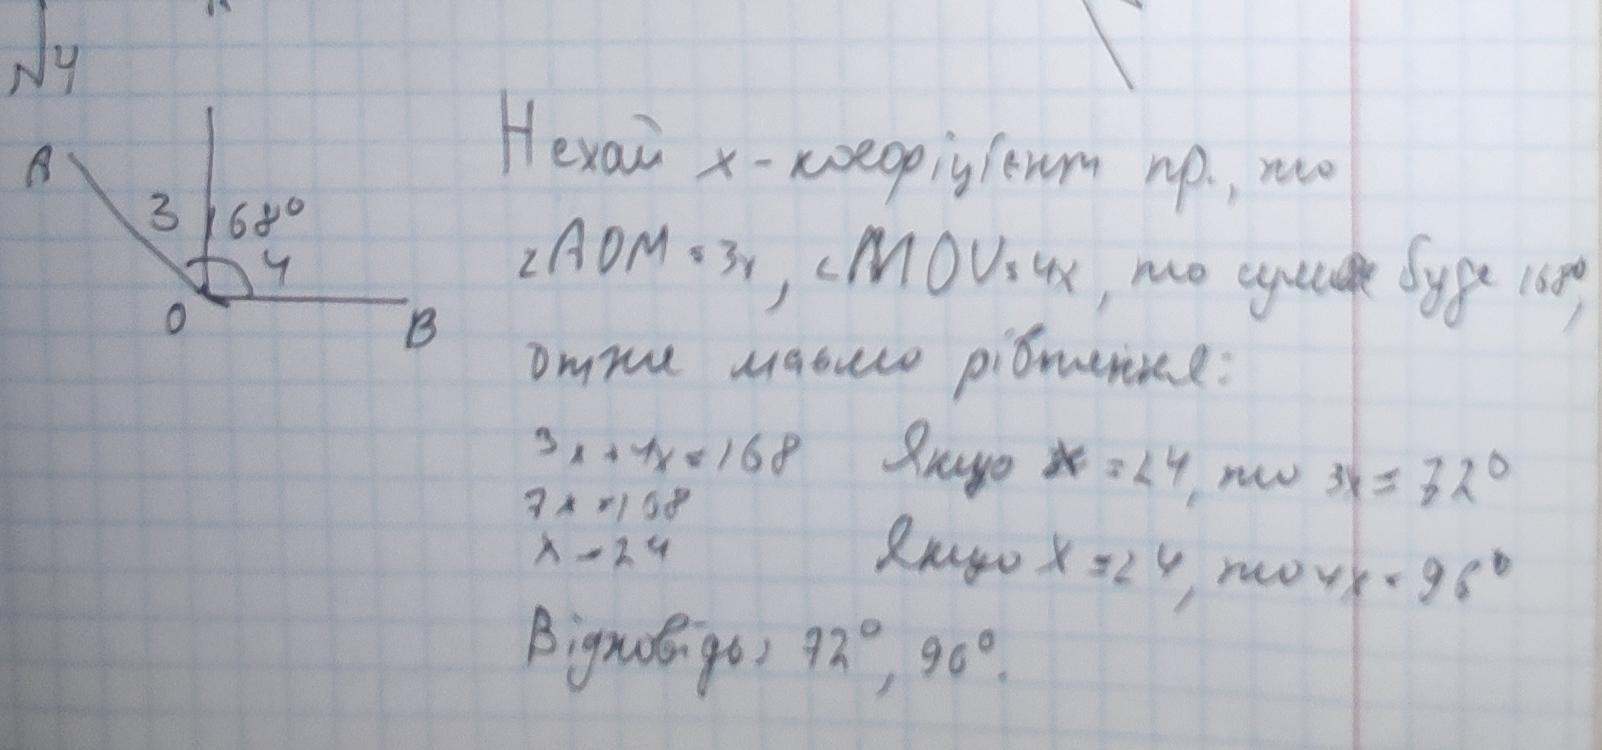 №4
A
3 68°
4
O
B
Нехай х - коефіцієнт пр., то
∠AOM = 3x, ∠MOV = 4x, то сума буде 168°,
отже маємо рівняння:
3x + 4x = 168 Якщо x = 24, то 3x = 72°
7x = 168
x = 24 Якщо x = 24, то 4x = 96°
Відповідь: 72°, 96°.